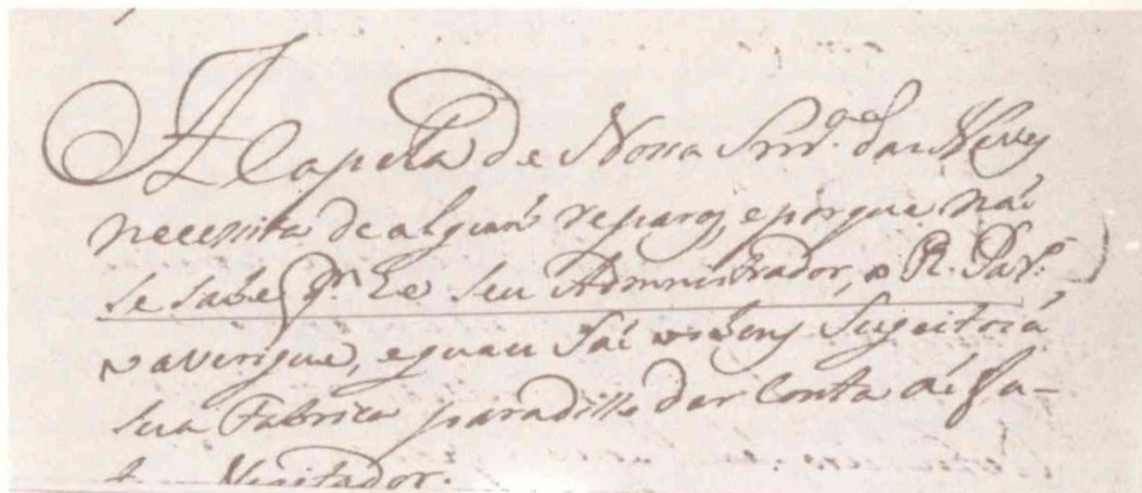 A Capela de Nossa Snr.ª das Neves
necessita de alguns reparos, e porque naõ
se sabe q.m he seu Administrador, o R. Par.º
o averigue, e quais saõ os bens sugeitos á
sua Fabrica para dísso dar Conta ao fu-
Vizitador.